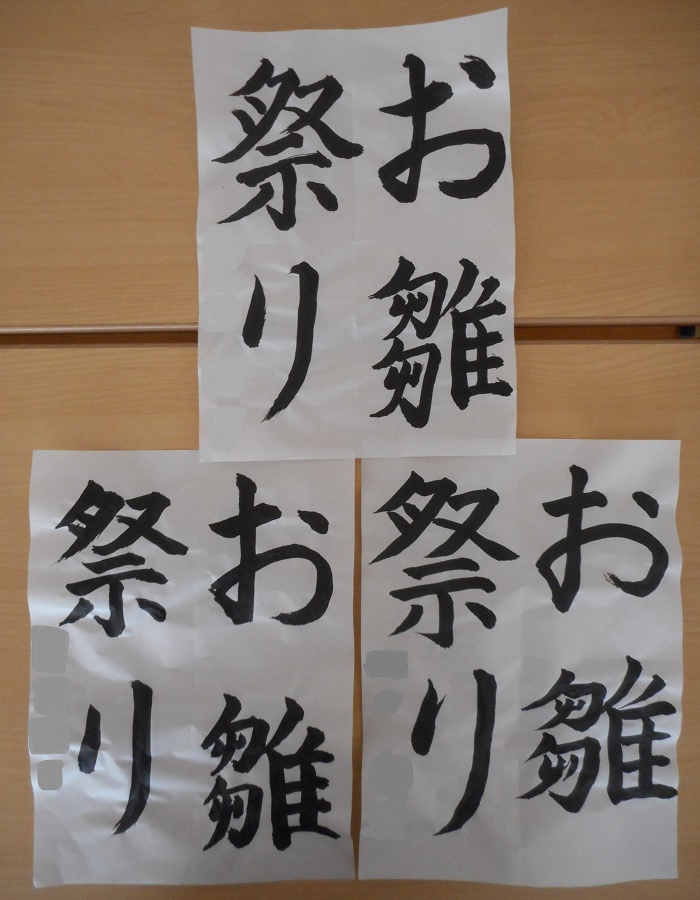 お雛
祭り
お雛
祭り
お雛
祭り